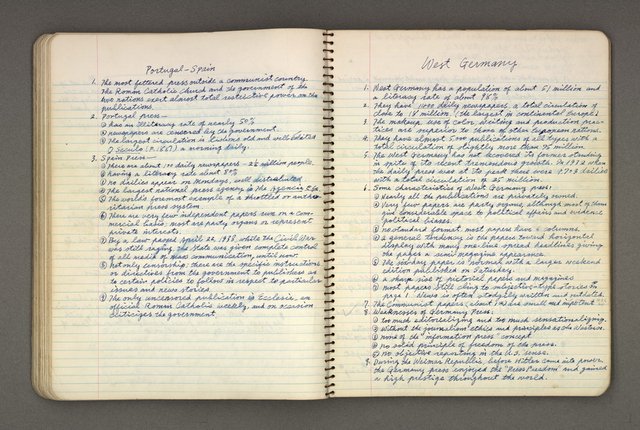 Portugal-Spain
1. The most fettered press outside a communist country.
The Roman Catholic Church and the government of the
two nations exert almost total restrictive power on the
publications.
2. Portugal press —
① has an illiteracy rate of nearly 50%
② newspapers are censored by the government.
③ The largest circulation is and well-
O Seculo (P. 1867) a morning daily.
3. Spain Press —
① There are about 110 daily newspapers — people.
② having a literacy rate about 80%
③ no dailies appear on Mondays, well distributed.
④ The largest national press agency is the Agencia Efe
⑤ The world's foremost example of a throttled or author-
itarian press system.
⑥ There are very few independent papers run on a com-
mercial basis, most are party organs or represent
private interests.
⑦ By a law passed April 22, 1938, while the Civil War
was still raging, the State was given complete control
of all media of mass communication, until now.
⑧ Not only censorship, there are the specific instructions
or directives from the government to publishers as
to certain policies to follow in respect to particular
issues and news stories.
⑨ The only uncensored publication is Ecclesia, an
official Roman Catholic weekly, and on occasion
criticizes the government.
West Germany
1. West Germany has a population of about 51 million and
a literacy rate of about 98%
2. They have daily newspapers, a total circulation of
close to 18 million (the largest in continental Europe)
3. The makeup, use of color printing and production prac-
tices are superior to those of other European nations.
4. They have almost 5000 publications of all types with a
total circulation of slightly more than 95 million
5. The West Germany has not recovered its former standing
in spite of its recent tremendous growth. In 1932 when
the daily press was at its peak there were 4703 dailies
with a total circulation of 25 million.
6. Some characteristics of West Germany press:
① Nearly all the publications are privately owned.
② Very few papers are party organs, although most of them
give considerable space to political affairs and evidence
political biases.
③ no standard format, most papers have 5 columns.
④ a general tendency in the papers toward horizontal
display with many one-line spread headlines giving
the paper a semi-magazine appearance.
⑤ The six-day paper is normal with a larger weekend
edition published on Saturday.
⑥ a sharp rise of pictorial papers and magazines
⑦ most papers still cling to subjective-type stories on
page 1. News is often stodgily written and outdated.
7. The Communist papers (about 10) are small and impotent
8. Weaknesses of Germany Press:
① too much editorializing and too much sensationalizing.
② Without the journalism ethics and principles as the Western.
③ none of the "information press" concept
④ no solid principle of freedom of the press.
⑤ no objective reporting in the U.S. sense.
9. During the Weimar Republic, before Hitler came into power,
the Germany press enjoyed the "Press Freedom" and gained
a high prestige throughout the world.